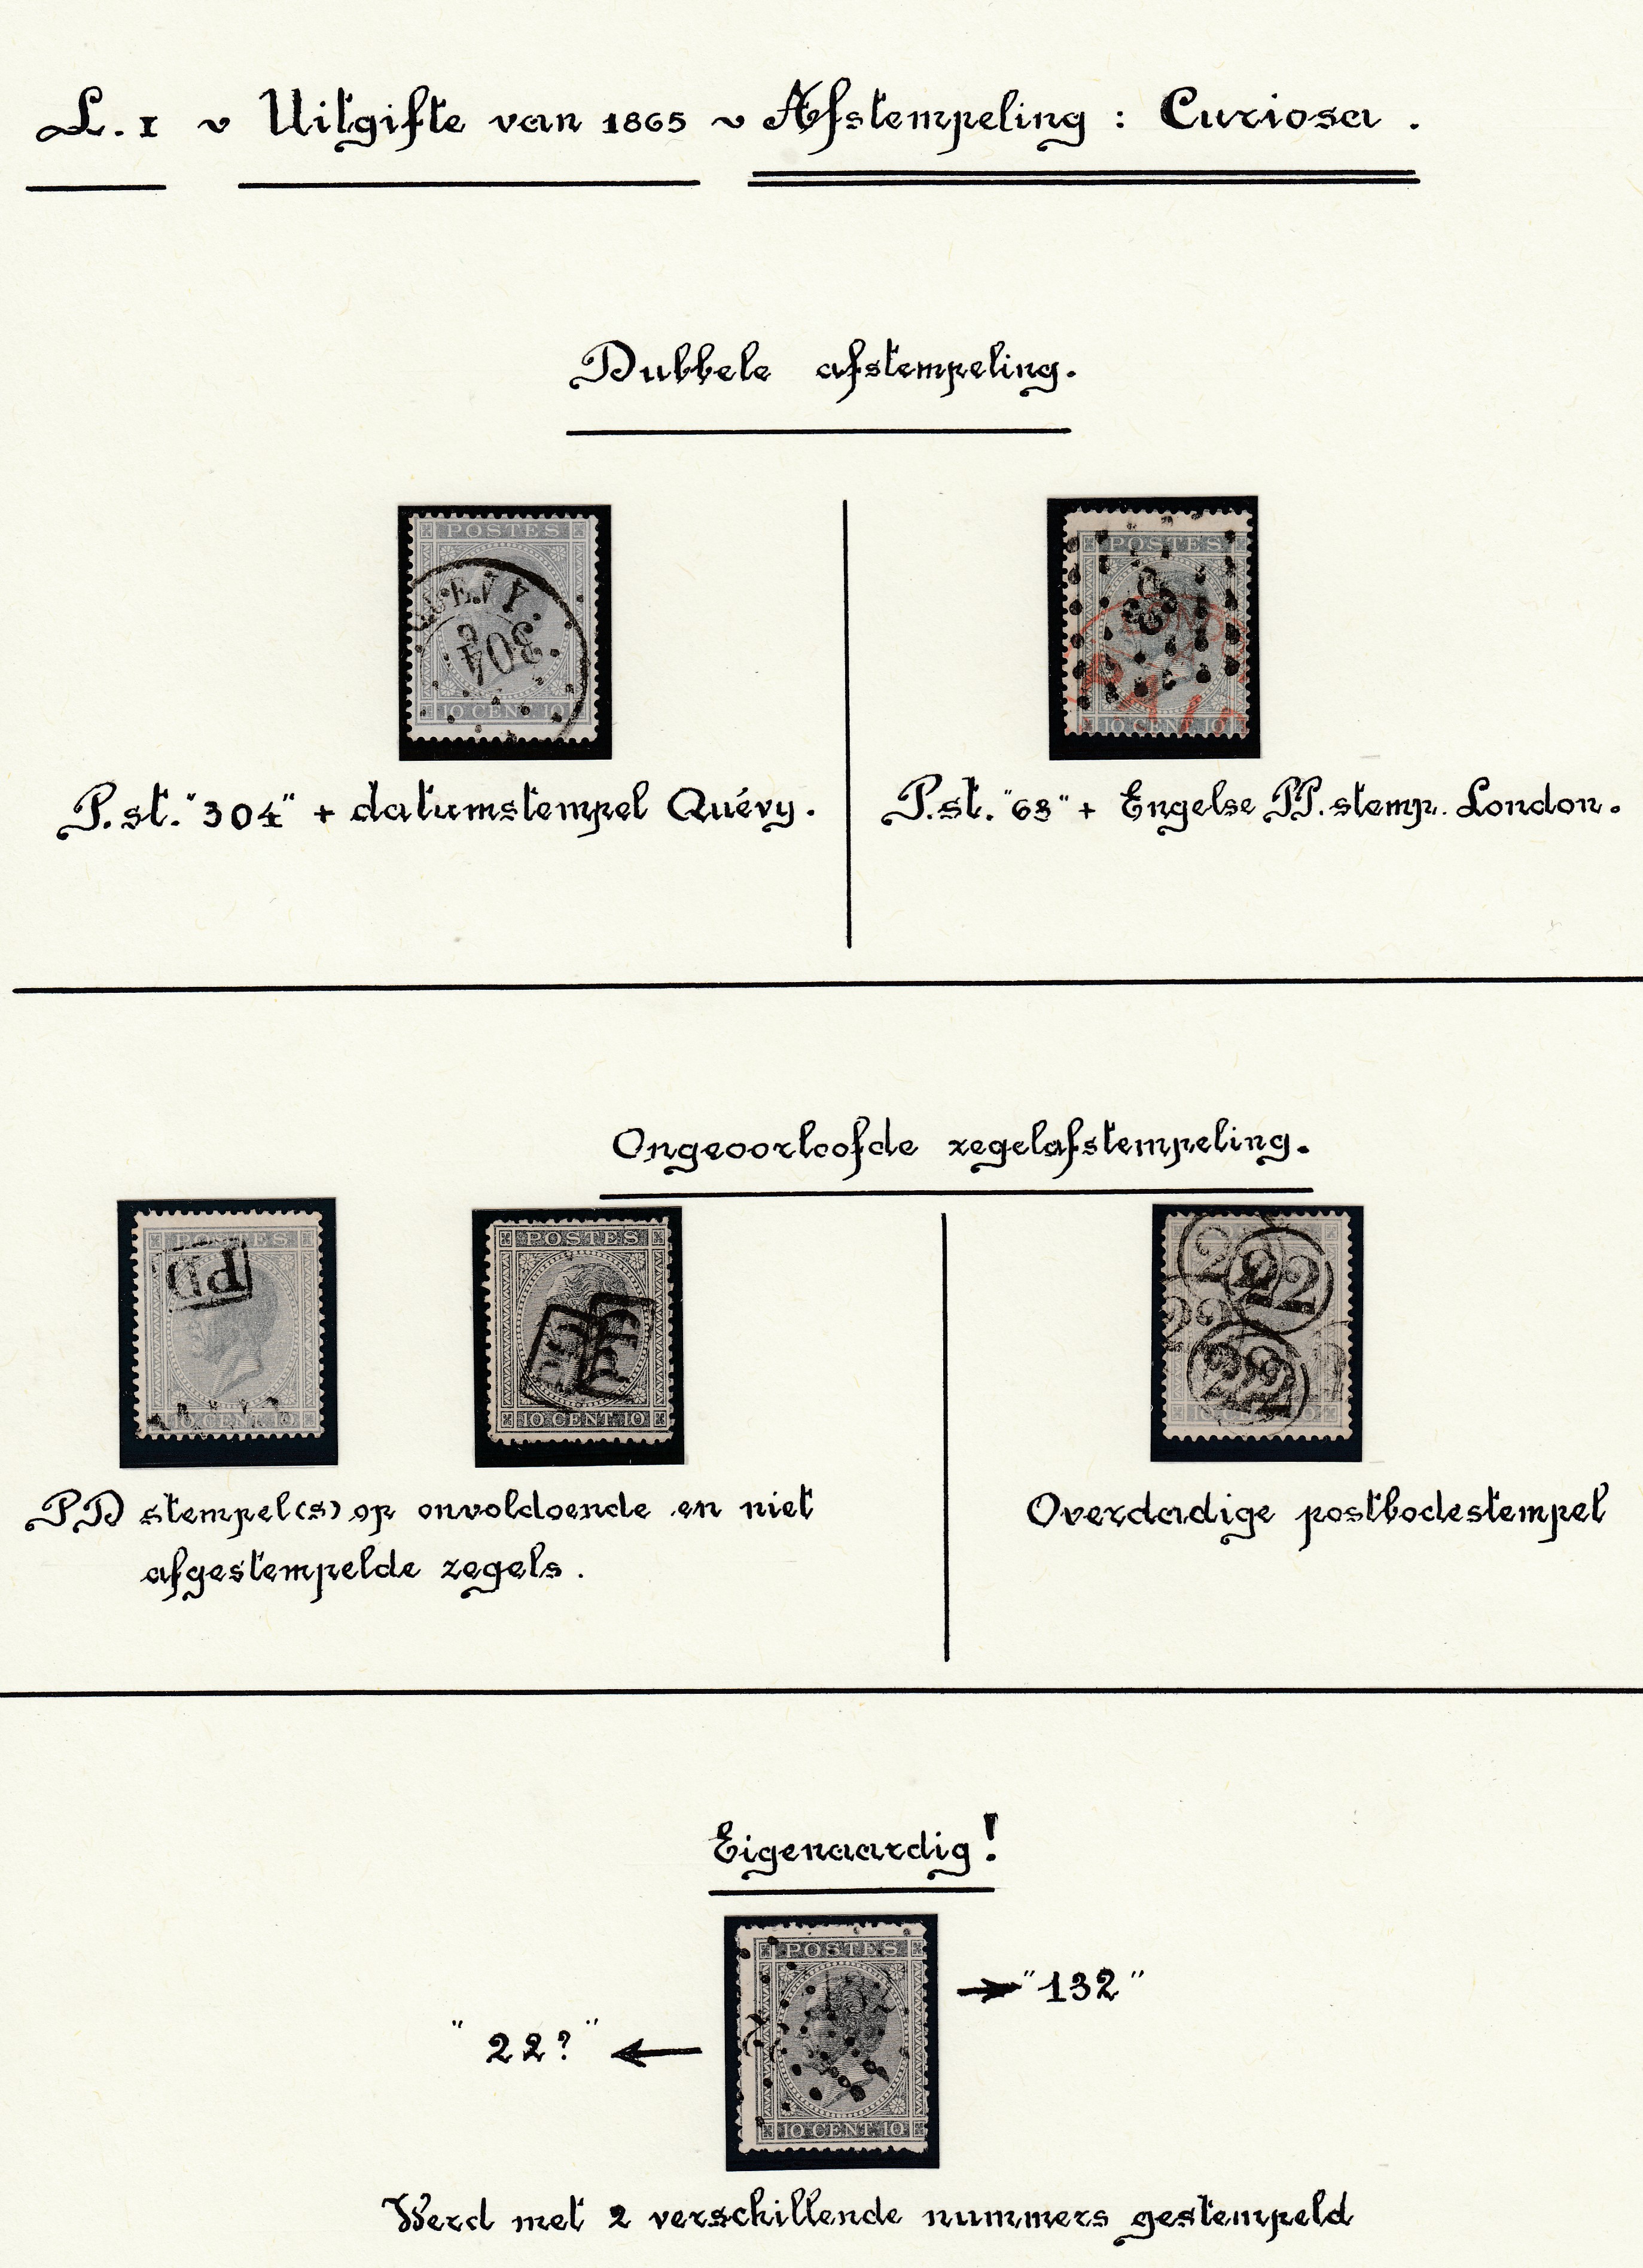 L.1 ~ Uitgifte van 1865 ~ Afstempeling : Curiosa .
Dubbele afstempeling.
POSTES
QUÉVY
304
10 CENT. 10
POSTES
63
LOND
PAID
10 CENT. 10
P.st. "304" + datumstempel Quévy.
P.st. "63" + Engelse PP. stemp. London.
Ongeoorloofde zegelafstempeling.
POSTES
PD
10 CENT. 10
POSTES
PD
PD
10 CENT. 10
22
22
22
22
22
10 CENT. 10
PD stempel(s) op onvoldoende en niet
afgestempelde zegels.
Overdadige postbodestempel
Eigenaardig!
POSTES
132
10 CENT. 10
"132"
"22?"
Werd met 2 verschillende nummers gestempeld